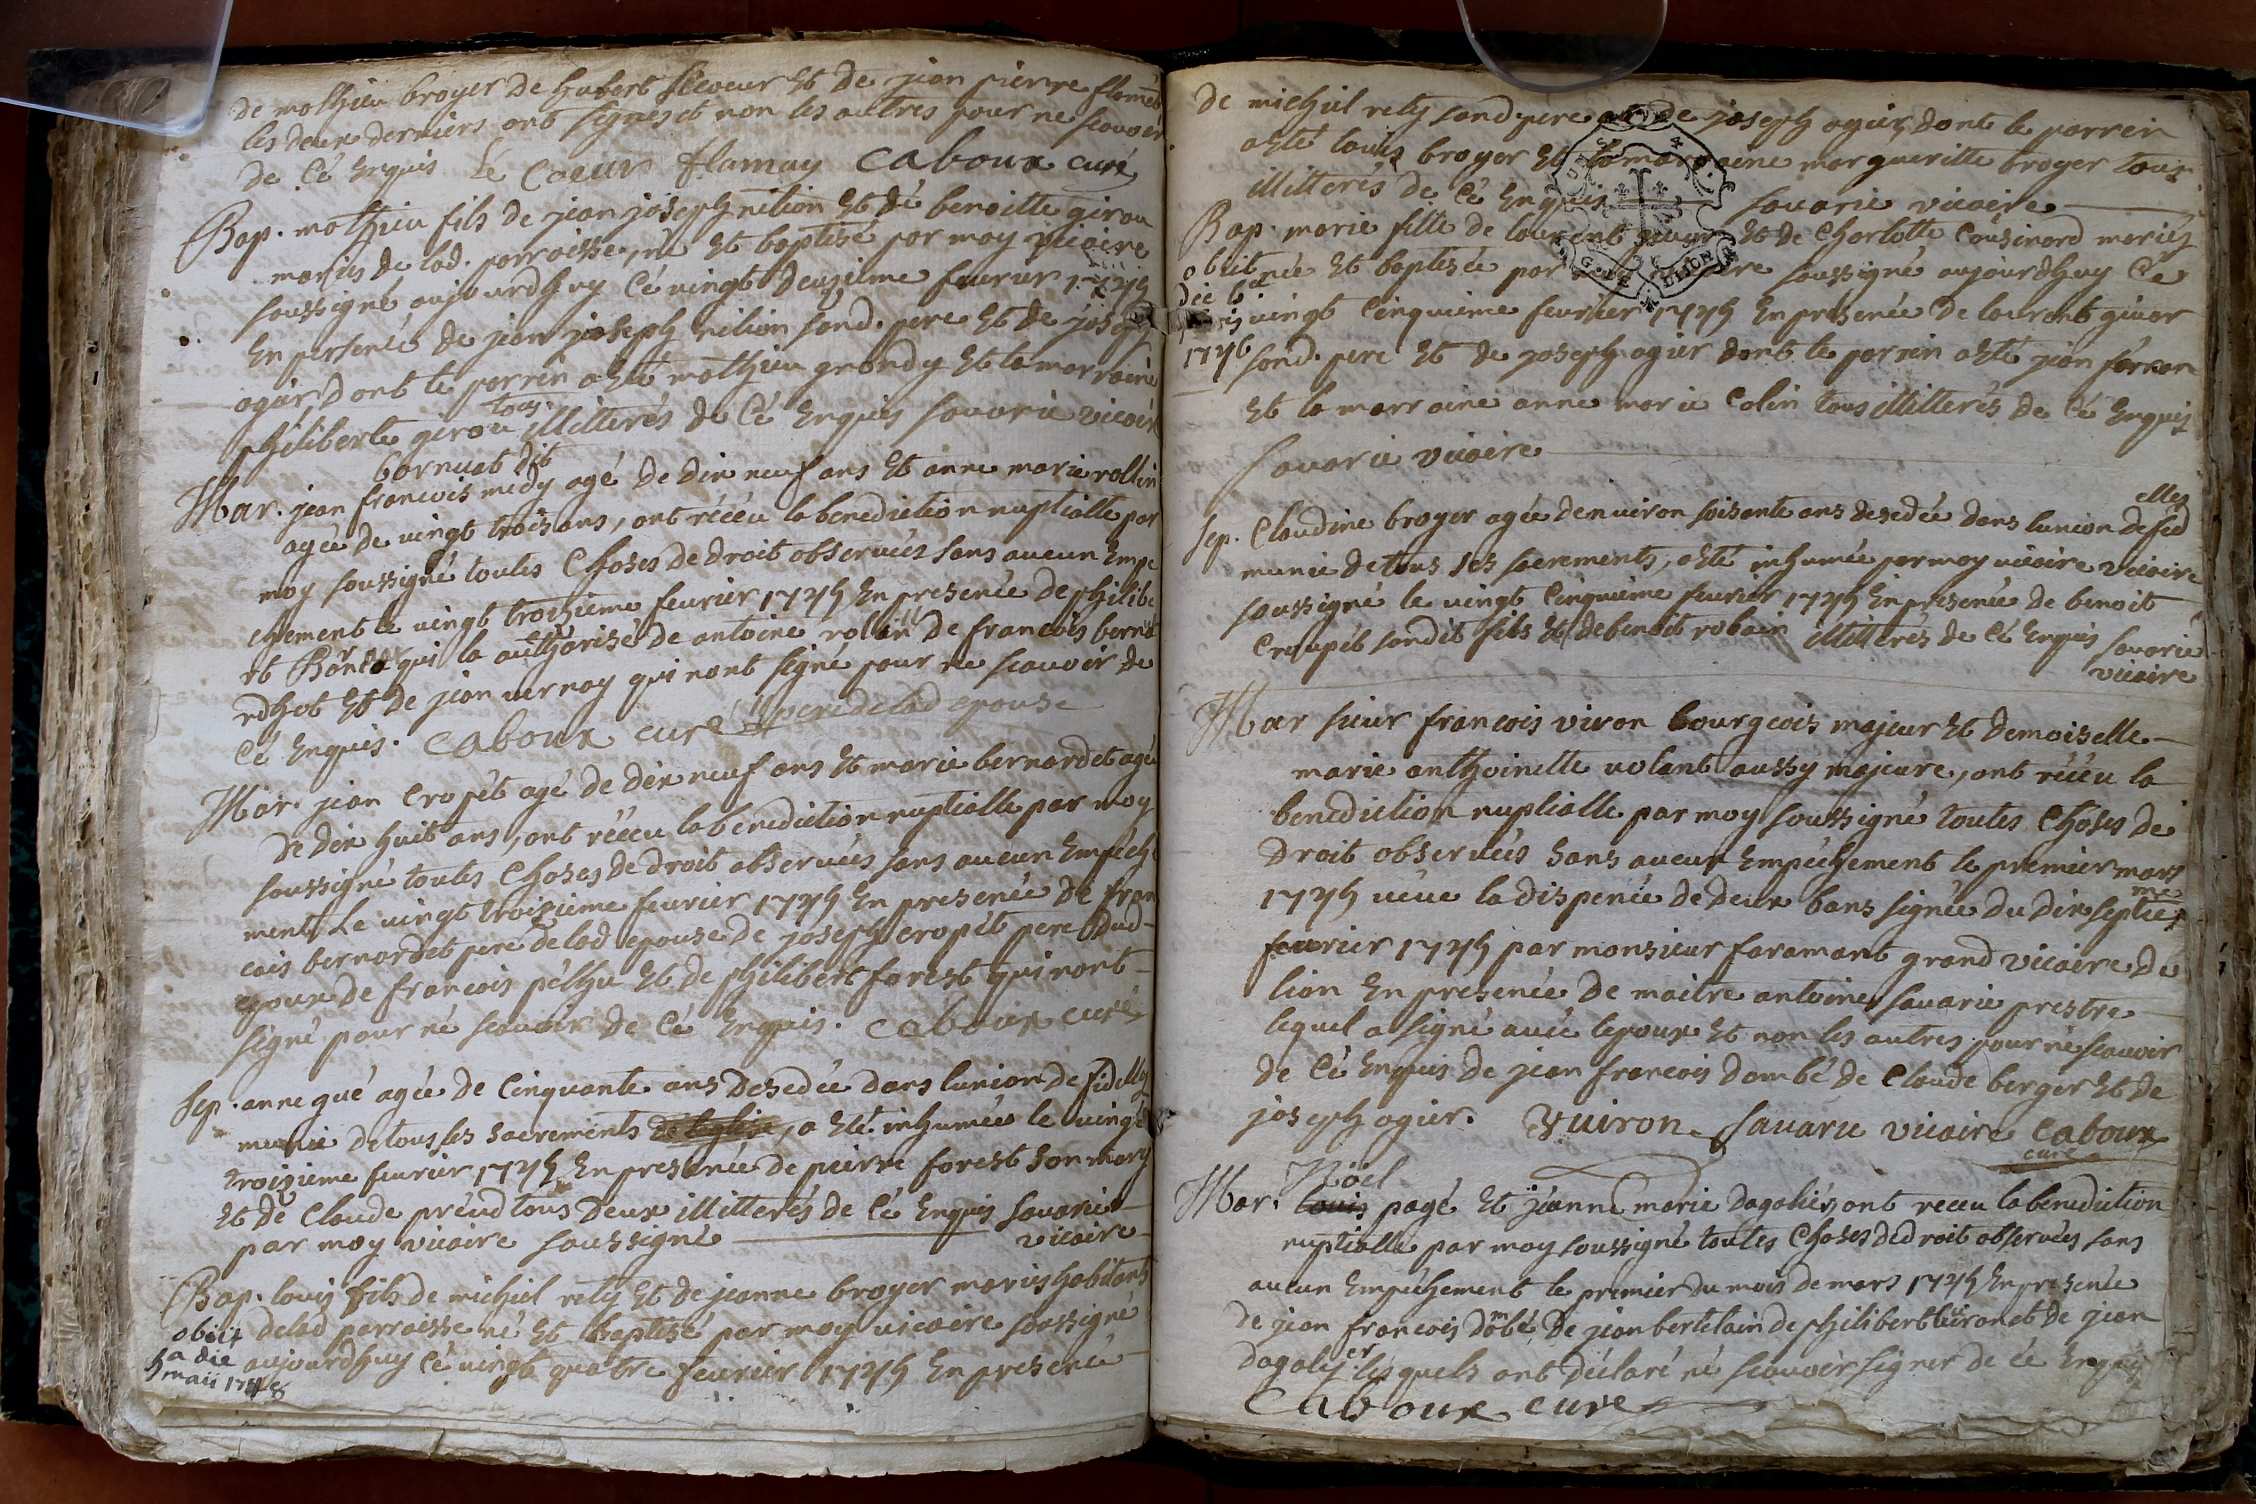 de mathieu broyer de hubert Lecoeur Et de jean pierre flamét
les deux derniers ont signes et non les autres pour ne scavoir
de Cé Enquis Lé Coeur flamay Caboux curé
Bap. mathieu fils de jean joseph nilion Et dé benoitte girou
mariés de lad. parroisse, né Et baptisé par moy vicaire
soussigné aujourdhuy Cé vingt deuzieme feurier 1745
En persencé de jean joseph nilion sond. pere Et de joseph
ogier, dont le parrein a été mathieu grandy Et la marraine
philiberte girou tous illitterés de Cé Enquis sauarie vicaire
bornuat dit
Mar. jean francois medy agé de dix neuf ans Et anne marie rollin
agée de vingt trois ans, ont récéu la benediction nuptialle par
moy soussigné toutes Choses de droit observées sans aucun Empe
chement le vingt troizieme feurier 1745 En presencé de philibe
rt qui la authorisé de antoine rolin de francois berna
rdhot Et de jean vernay qui nont signé pour ne scavoir de
Cé Enquis. Caboux curé pere de lad epouse
Mar. jean Cropét agé de dix neuf ans Et marie bernardet agé
de dix huit ans, ont récéu la benediction nuptialle par moy
soussigné toutes Choses de droit observées sans aucun Empéche
ment, Le vingt troizieme feurier 1745 En presencé de fran
cois bernardet peré de lad epouse de joseph cropét pere dud
epoux de francois pélhu Et de philibert forest qui nont
signé pour né scavoir de Cé Enquis. Caboux curé
Sep. anne gué agée de Cinquante ans desedée dans lunion de fidelles
munie de tous les sacrements de leglise, a été inhumée le vingt
troizieme feurier 1745 En presencé de pierre forest son mary
Et de Claude préud tous deux illitterés de Cé Enquis sauarie
par moy vicaire soussigné vicaire
Bap. louis fils de michiel rety Et de jeanne broyer mariés habitants
obiit de lad parroisse né Et baptisé par moy vicaire soussigné
a die aujourdhuy Cé vingt quatre feurier 1745 En presencé
5 maii 1748
de michiel rety sond. pere et de joseph ogier, dont le parrein
a été louis broyer Et la marraine margueritte broyer tous
illitterés de Cé Enquis sauarie vicaire
Bap. marie fille de laurent giuar Et de Charlotte Cousinard mariés
obiit née Et baptisée par vicaire soussigné aujourdhuy Cé
die 6a vingt Cinquieme feurier 1745 En présencé de laurent giuar
1746 sond. pere Et de joseph ogier dont le parrein a été jean férran
Et la marraine anne marie Colin tous illitterés de Cé Enquis
sauarie vicaire
elles
Sep. Claudine broyer agée denuiron soisante ans desedée dans lunion de fid
munie de tous ses sacrements, a été inhumée par moy vicaire vicaire
soussigné le vingt Cinquiéme feurier 1745 En presencé de benoit
Croupét sondit fils Et de benoit robain illitterés de Cé Enquis sauarie
vicaire
Mar sieur francois viron bourgeois majeur Et demoiselle
marie anthoinette volant aussy majeure, ont récéu la
benediction nuptialle par moy soussigné toutes Choses de
droit observées sans aucun Empéchement le premier mars
1745 uéue la dispencé de deux bans signée du dix septie
me
feurier 1745 par monsieur faramant grand vicaire de
lion En presencé de maitre antoine sauarie prestre
lequel a signé auéc lepoux Et non les autres pour né scauoir
de Cé Enquis de jean francois dombé de Claude berger Et de
joseph ogier. Vuiron sauarie vicaire Caboux
curé
Nöel
Mar. louis pagé Et jéanne marie dagaliér, ont receu la benediction
nuptialle par moy soussigné toutes Choses de droit observées sans
aucun Empéchement le premier du mois de mars 1745 En presencé
de jean francois dõbé, de jean bertelain de philibert tiuran et de jean
dagalier lesquels ont déclaré né scauoir signer de cé Enquis
Caboux curé